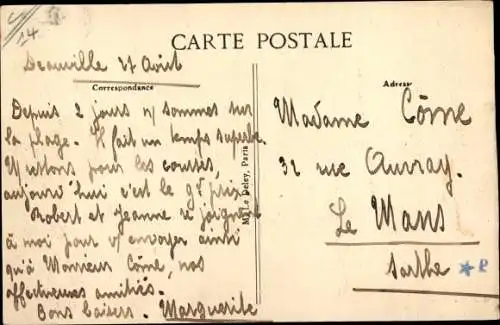 14
CARTE POSTALE
Deauville 27 Août
Correspondance
Adresse
Depuis 2 jours n/ sommes sur
la plage. Il fait un temps superbe.
N/ restons pour les courses,
aujourd'hui c'est le gd prix
Robert et Jeanne se joignent
à moi pour v/ envoyer ainsi
qu'à Monsieur Côme, nos
affectueuses amitiés.
Bons baisers. Marguerite
Mlle Deley, Paris
Madame Côme
32 rue Auvray.
Le Mans
Sarthe